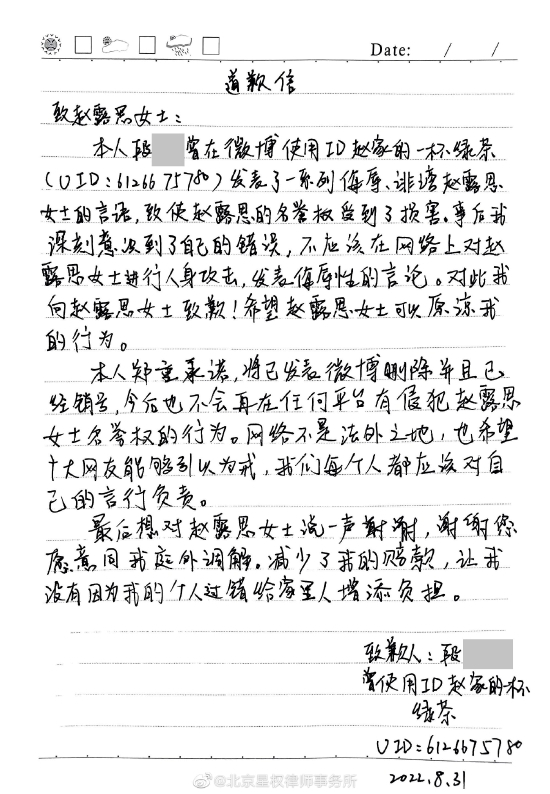 Date: / /
道歉信
致赵露思女士：
本人段 曾在微博使用ID赵家的一杯绿茶
（UID：6126675780）发表了一系列侮辱、诽谤赵露思
女士的言语，致使赵露思的名誉权受到了损害。事后我
深刻意识到了自己的错误，不应该在网络上对赵
露思女士进行人身攻击，发表侮辱性的言论。对此我
向赵露思女士致歉！希望赵露思女士可以原谅我
的行为。
本人郑重承诺，将已发表微博删除并且已
经销号，今后也不会再在任何平台有侵犯赵露思
女士名誉权的行为。网络不是法外之地，也希望
广大网友能够引以为戒，我们每个人都应该对自
己的言行负责。
最后想对赵露思女士说一声谢谢，谢谢您
愿意同我庭外调解。减少了我的赔款，让我
没有因为我的个人过错给家里人增添负担。
致歉人：段
曾使用ID赵家的一杯
绿茶
UID：6126675780
2022.8.31
@北京星权律师事务所